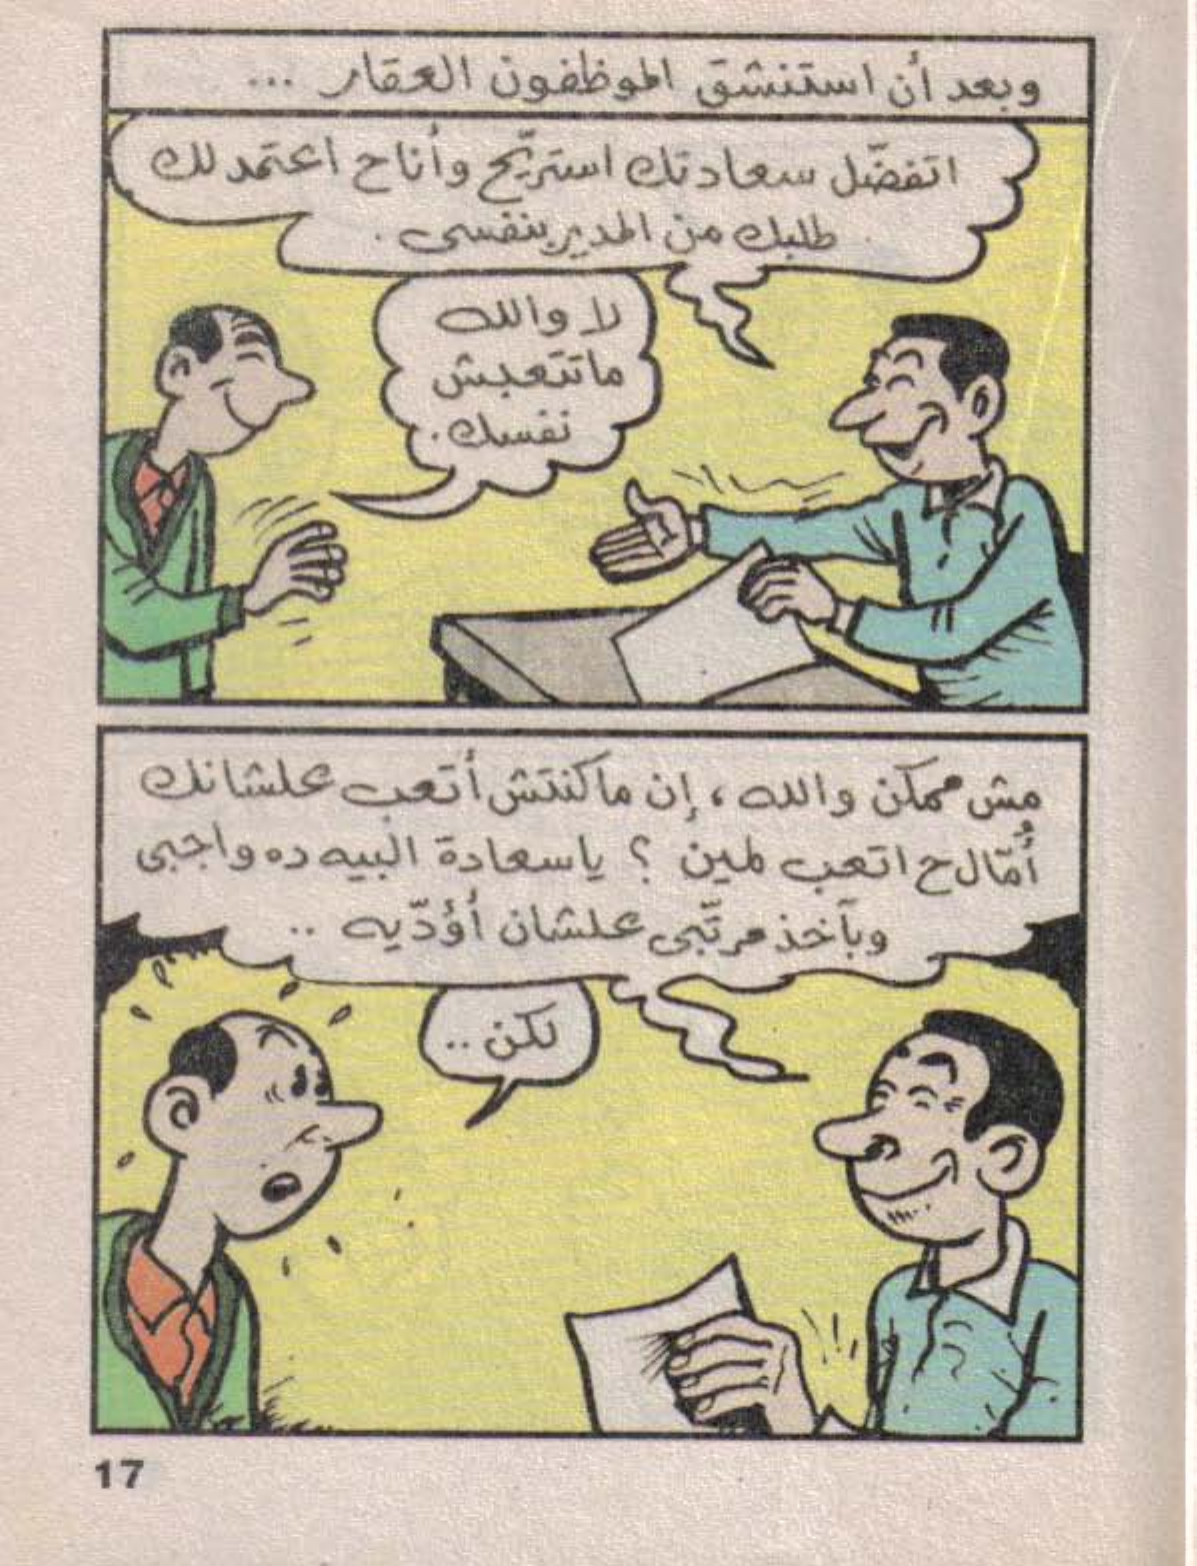 وبعد أن استنشق الموظفون العقار ...
اتفضّل سعادتك استريّح وأناح اعتمدلك
طلبك من المدير بنفسى .
لا والله
ماتتعبش
نفسك .
مش ممكن والله ، إن ماكنتش أتعب علشانك
أُمّال ح اتعب لمين ؟ ياسعادة البيه ده واجبى
وبآخذ مرتّبى علشان أؤدّيه ..
لكن ..
17